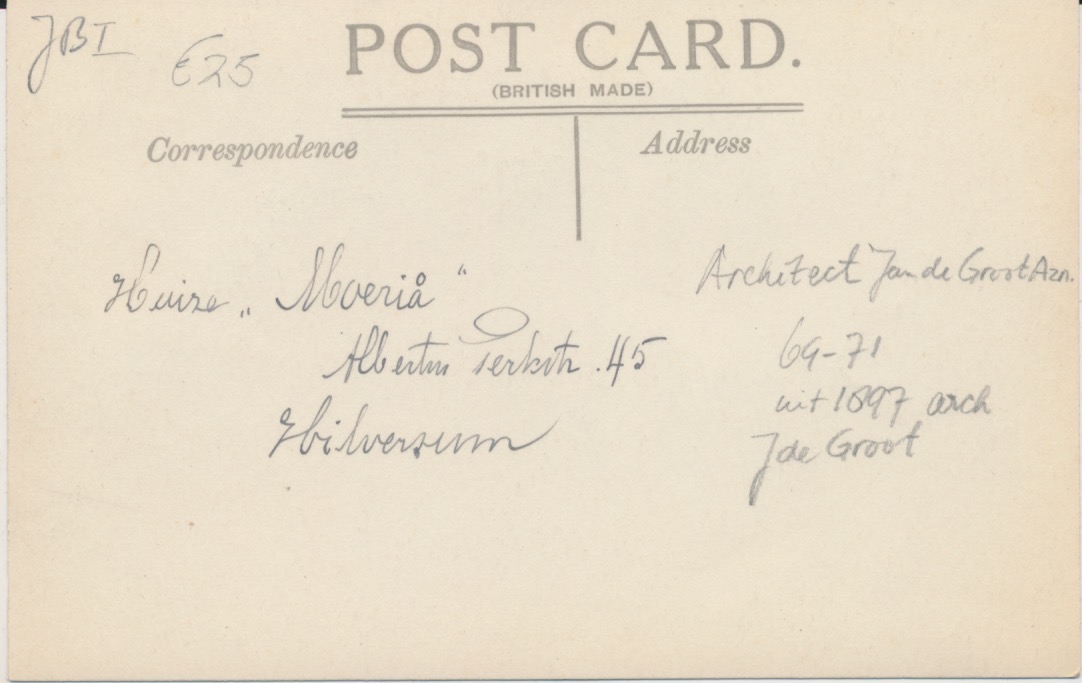 JBI
€25
POST CARD.
(BRITISH MADE)
Correspondence
Address
Huize „Moeriå“
Albertus Perkstr. 45
Hilversum
Architect Jan de Groot Azn.
69-71
uit 1897 arch
J de Groot